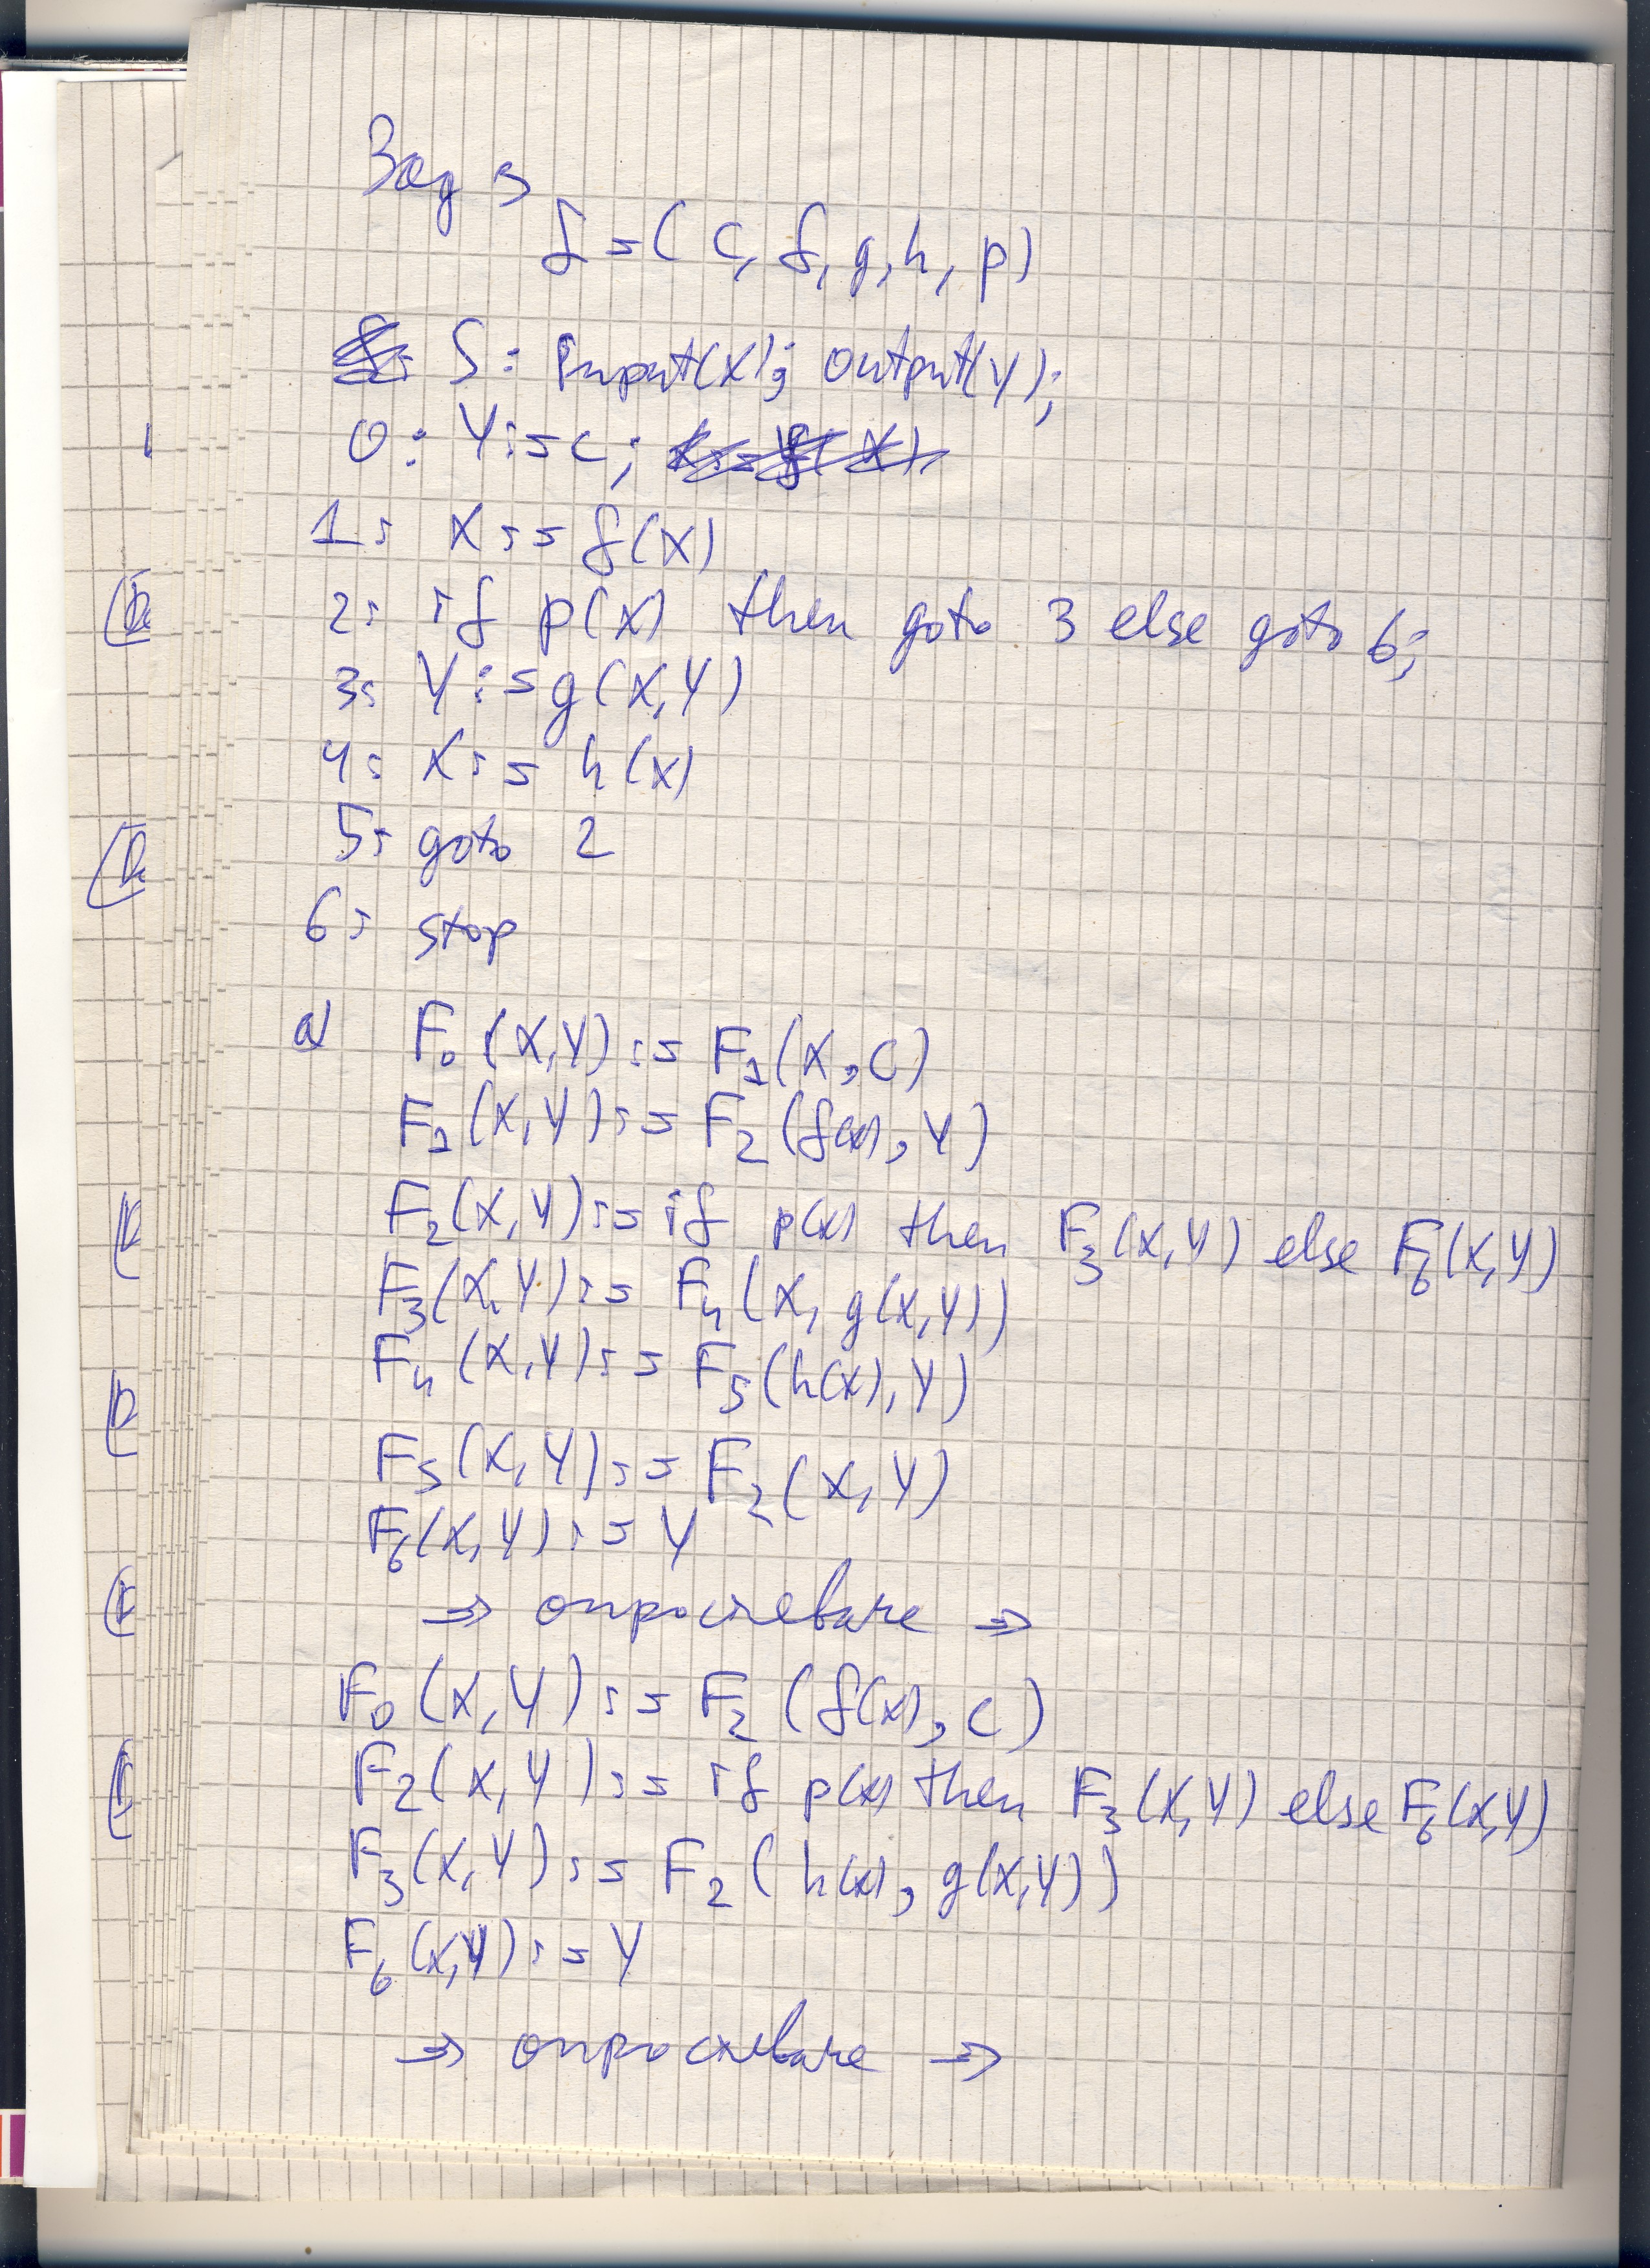 Зад 3
L = (c, f, g, h, p)
S: Input(X); output(Y);
0: Y:=c;
1: X:=f(X)
2: if p(X) then goto 3 else goto 6;
3: Y:=g(X,Y)
4: X:=h(X)
5: goto 2
6: stop
a) F₀(X,Y):=F₁(X,C)
F₁(X,Y):=F₂(f(x),Y)
F₂(X,Y):=if p(x) then F₃(X,Y) else F₆(X,Y)
F₃(X,Y):=F₄(X, g(X,Y))
F₄(X,Y):=F₅(h(x),Y)
F₅(X,Y):=F₂(X,Y)
F₆(X,Y):=Y
⇒ опростяване ⇒
F₀(X,Y):=F₂(f(x),C)
F₂(X,Y):=if p(x) then F₃(X,Y) else F₆(X,Y)
F₃(X,Y):=F₂(h(x), g(X,Y))
F₆(X,Y):=Y
⇒ опростяване ⇒